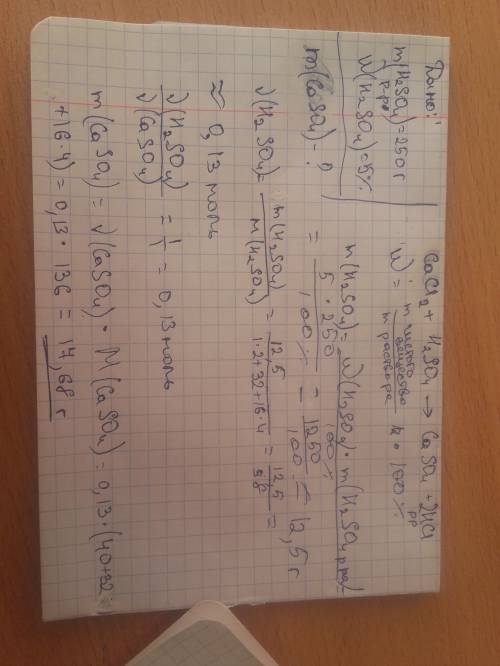 Дано:
m(H₂SO₄) = 250 г
р-ра
W(H₂SO₄) = 5%
m(CaSO₄) - ?
CaCl₂ + H₂SO₄ → CaSO₄ + 2HCl
W = m чистого вещества / m раствора · 100%
m(H₂SO₄) = W(H₂SO₄) · m(H₂SO₄ р-ра) / 100% =
= 5 · 250 / 100% = 1250 / 100 = 12,5 г
ν(H₂SO₄) = m(H₂SO₄) / M(H₂SO₄) = 12,5 / 1·2+32+16·4 = 12,5 / 98 =
≈ 0,13 моль
ν(H₂SO₄) / ν(CaSO₄) = 1/1 = 0,13 моль
m(CaSO₄) = ν(CaSO₄) · M(CaSO₄) = 0,13 · (40+32+
+16·4) = 0,13 · 136 = 14,68 г